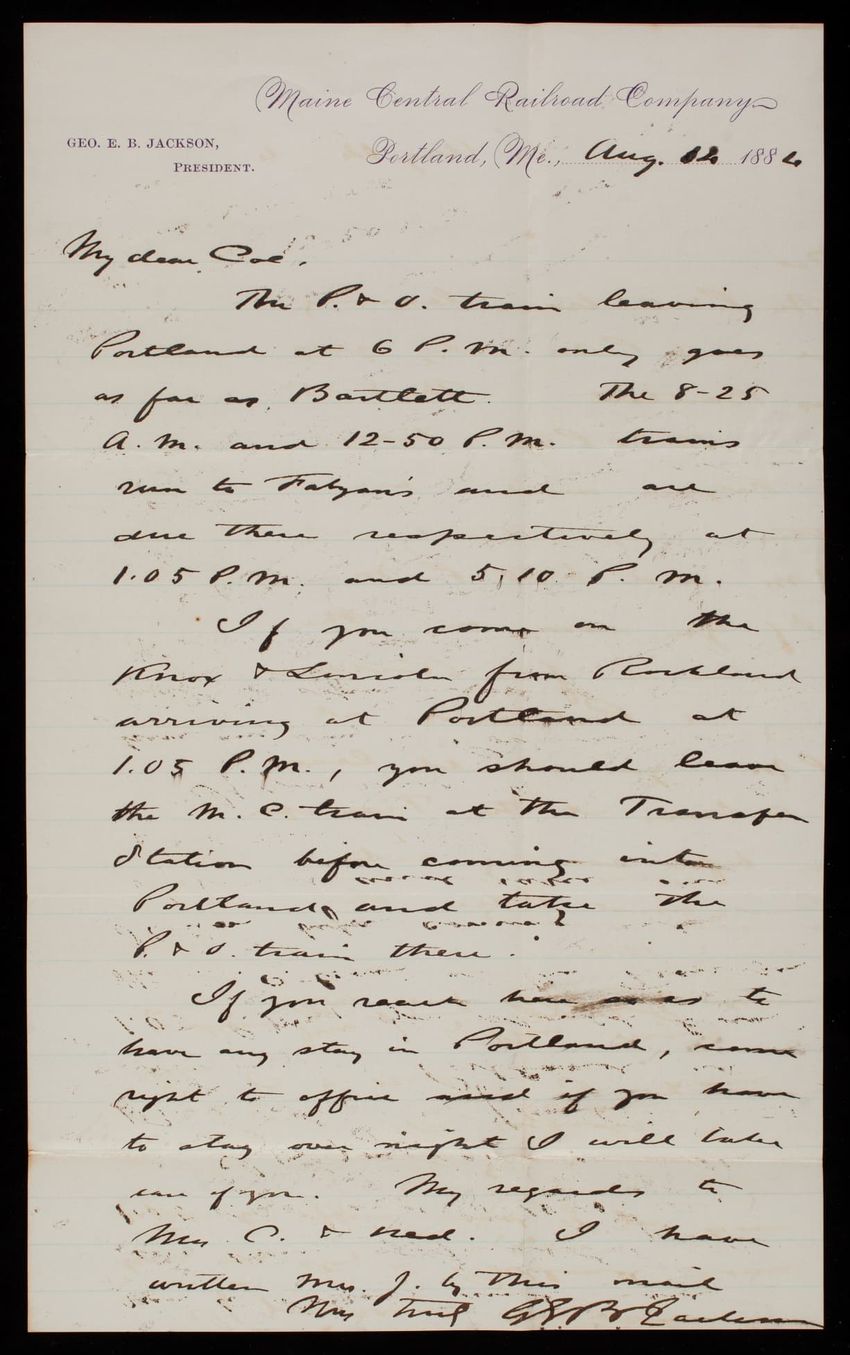 Maine Central Railroad Company
GEO. E. B. JACKSON,
PRESIDENT.
Portland, Me., Aug. 12 188
My dear Col.
The P. & O. train leaving
Portland at 6 P. M. only goes
as far as Bartlett. The 8-25
A. M. and 12-50 P. M. trains
run to Fabyan's and are
due there respectively at
1.05 P. M. and 5.10 P. M.
If you come on the
Knox & Lincoln from Rockland
arriving at Portland at
1.05 P. M., you should leave
the M. C. train at the Transfer
Station before coming into
Portland, and take the
P. & O. train there.
If you reach here so as to
have any stay in Portland, come
right to office and if you have
to stay over night I will take
care of you. My regards to
Mrs C. & Ned. I have
written Mrs. J. by this mail
Yrs truly G E B Jackson